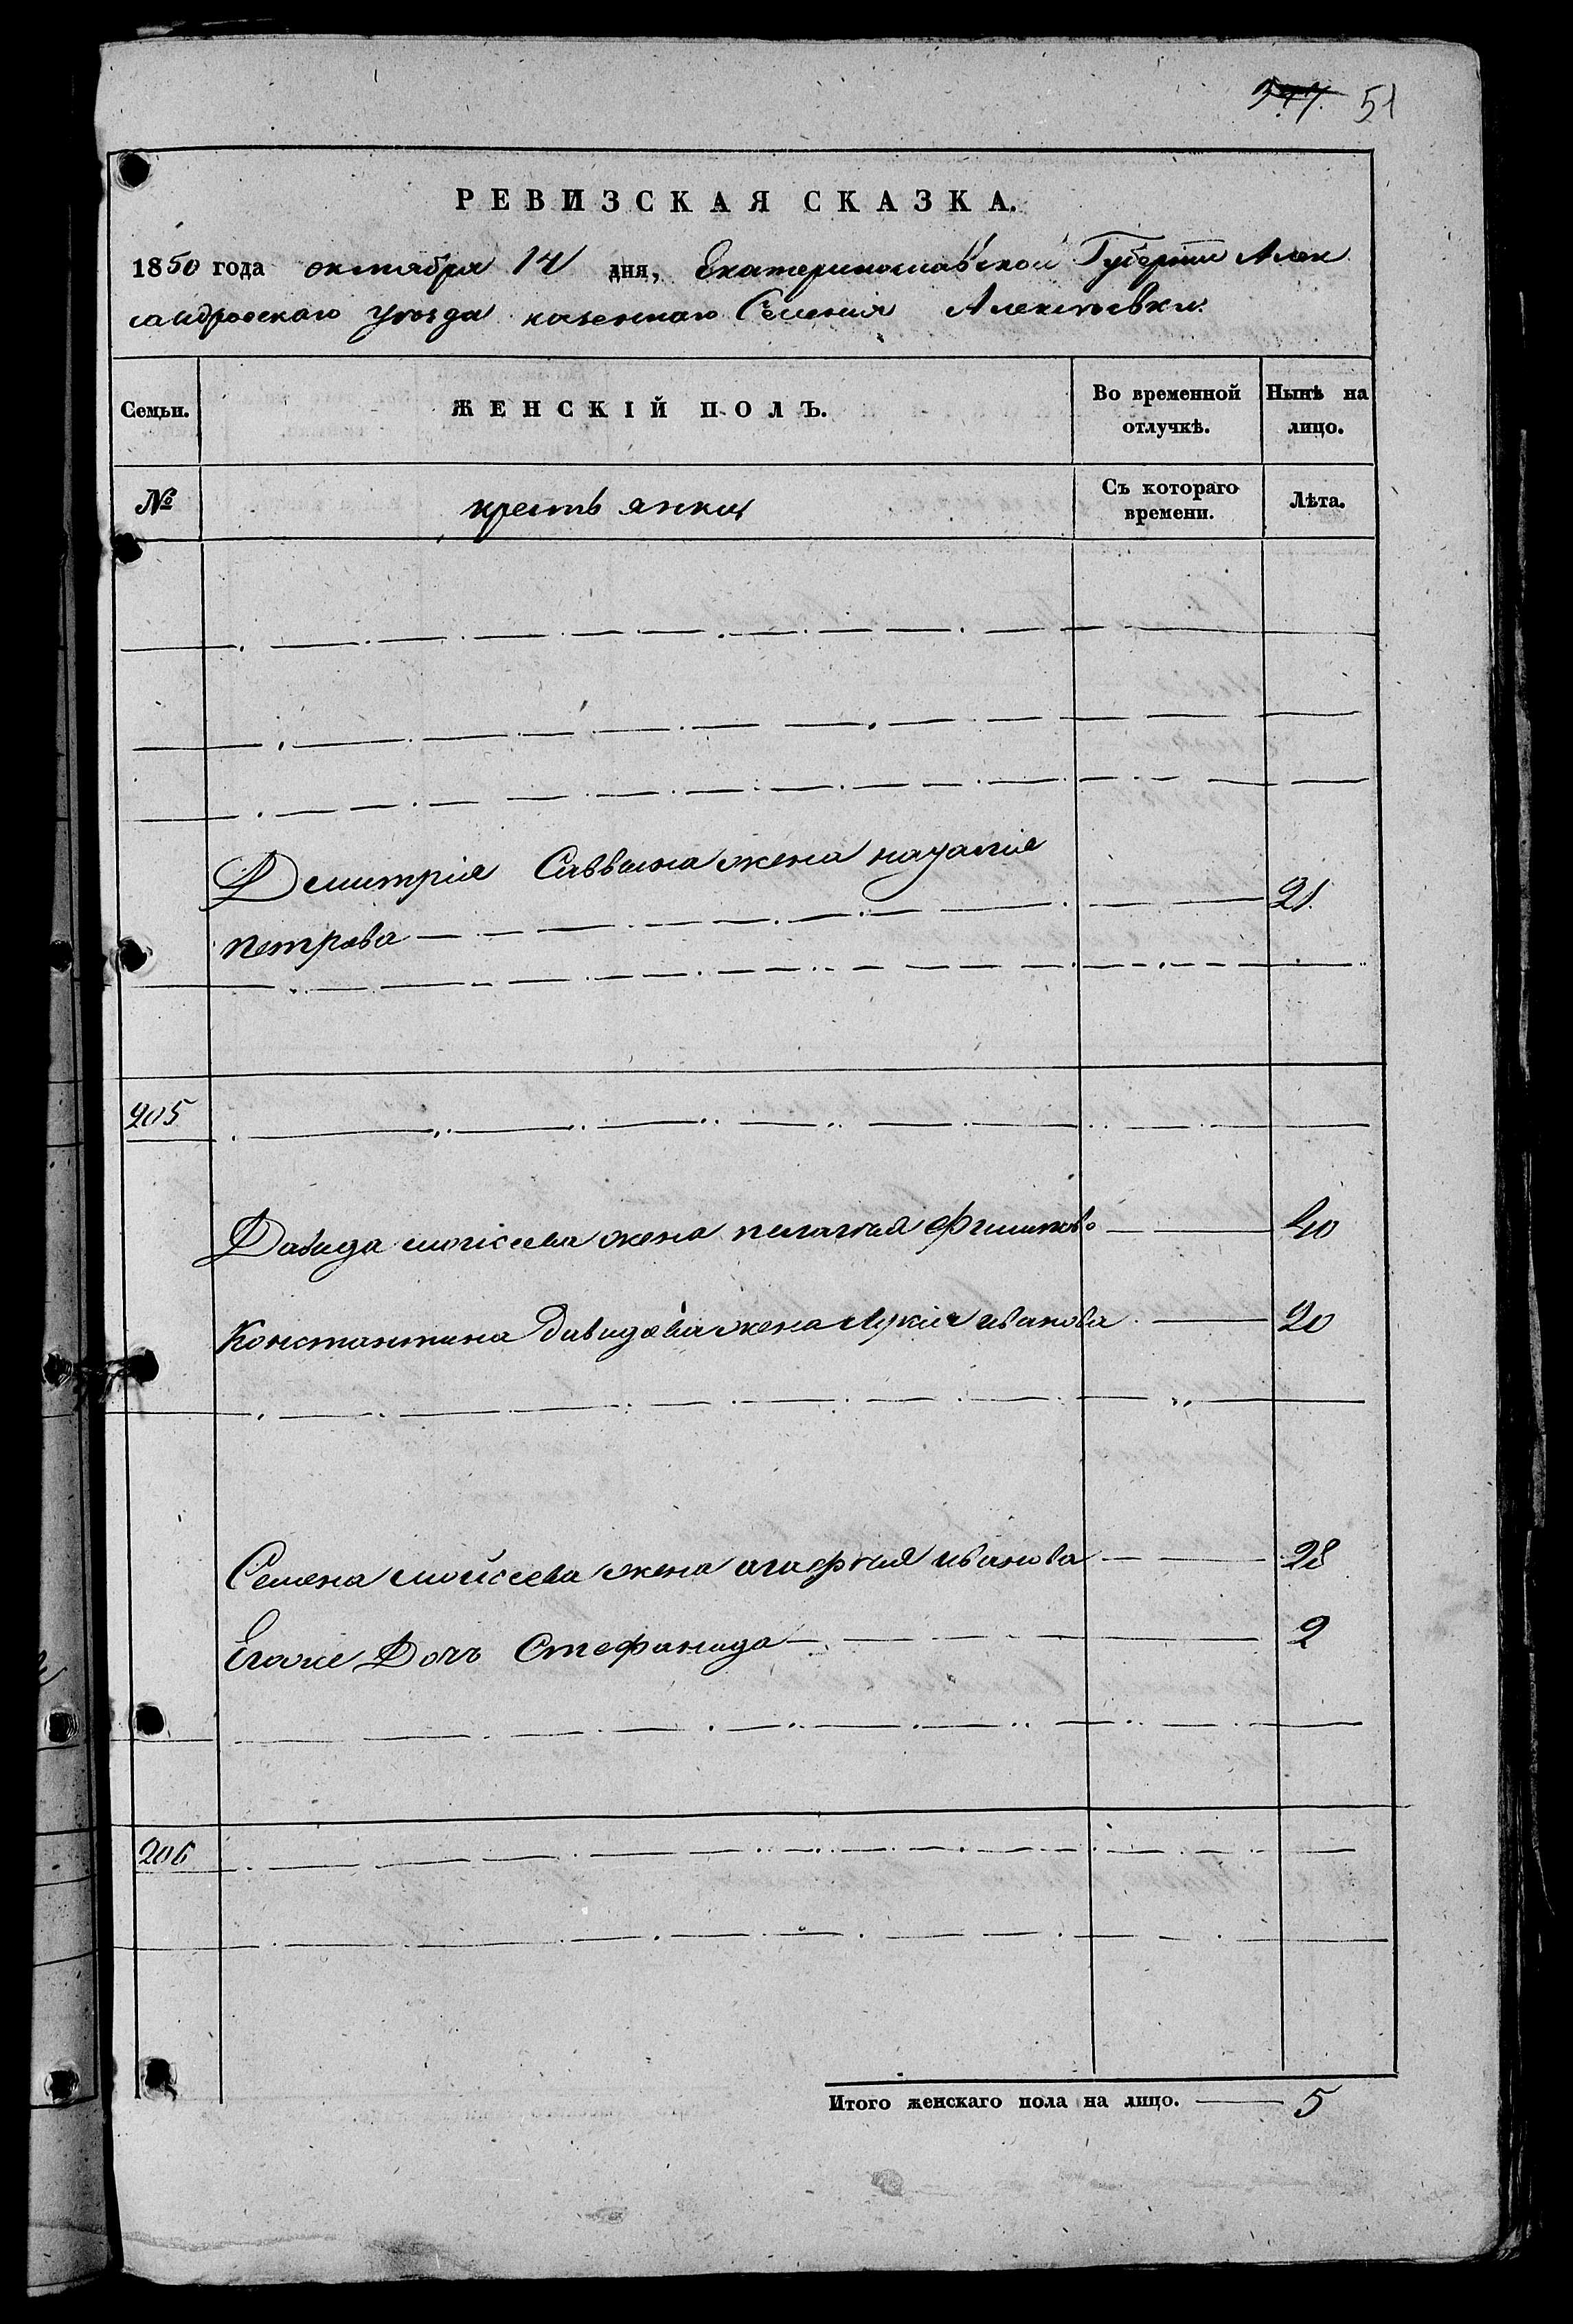 347. 51
РЕВИЗСКАЯ СКАЗКА.
1850 года октября 14 дня, Екатеринославской Губерніи Алек
сандровскаго уезда казеннаго Селенія Алексеевки.
Семьи. ЖЕНСКІЙ ПОЛЪ. Во временной отлучкѣ. Нынѣ на лицо.
№ крестьянки Съ котораго времени. Лѣта.
Дмитрія Саввина жена наталія
петрова 21.
205
Давида моисеева жена пелагия 40
Константина Давидова жена лукія иванова 20
Семена мойсеева жена агафия иванова 28
Егоже Дочь Стефанида 2
206
Итого женскаго пола на лицо. 5